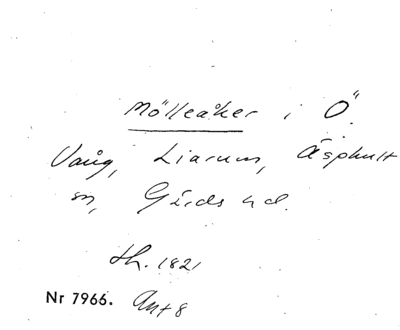 Mölleåker i Ö.
Vång, Liarum, Äsphult
sn, Gärds hd.
th. 1821
Nr 7966. Ant 8